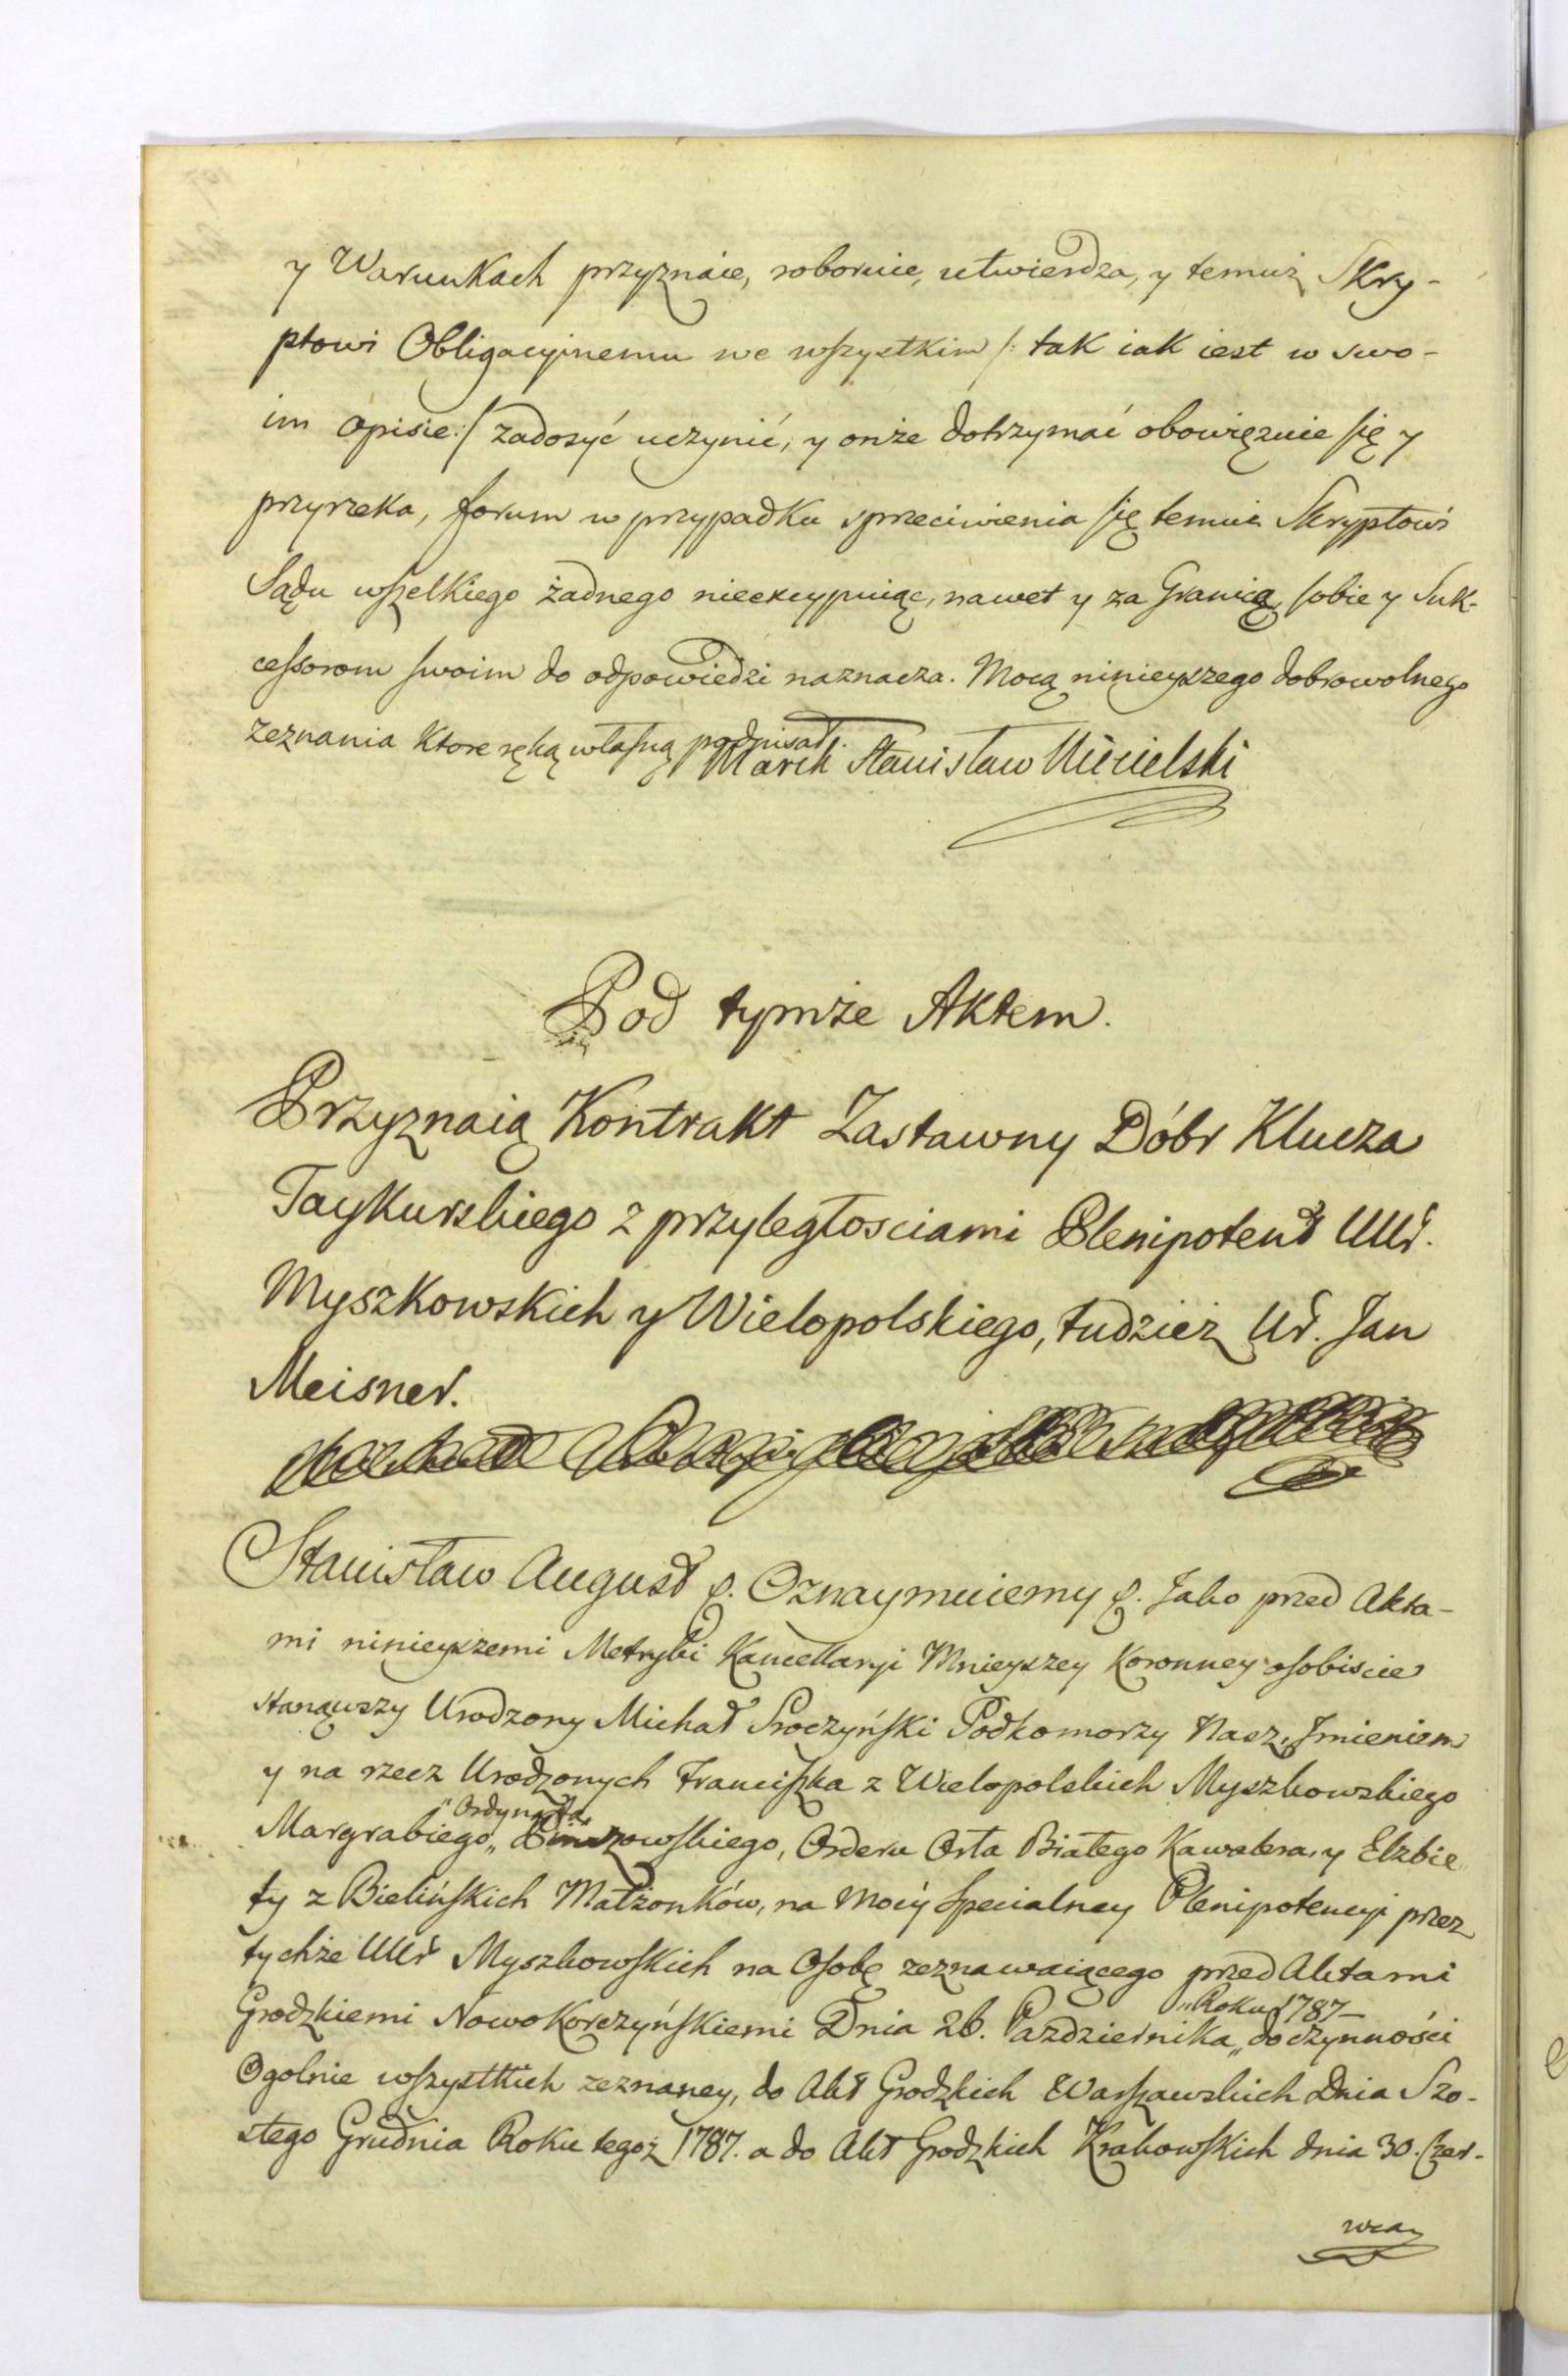 y Warunkach przyznaie, roboruie, utwierdza, y temuż Skry-
ptowi Obligacyjnemu we wszystkim /: tak iak iest w swo-
im opisie :/ zadosyć uczynić, y onże dotrzymać obowięzuie się y
przyrzeka, forum w przypadku sprzeciwienia się temuż Skryptowi
Sądu wszelkiego żadnego nieexcypuiąc, nawet y za Granicą, sobie y Suk-
cessorom swoim do odpowiedzi naznacza. Mocą ninieyszego dobrowolnego
zeznania Ktore ręką własną podpisał.
Marek Stanisław
Pod tymże Aktem.
Przyznaią Kontrakt Zastawny Dóbr Klucza
Taykurskiego z przyległosciami Plenipotent UUr.
Myszkowskich y Wielopolskiego, tudzież Ur. Jan
Meisner.
Stanisław August &. Oznaymuiemy &. Jako przed Akta-
mi ninieyszemi Metryki Kancellaryi Mnieyszey Koronney osobiscie
stanąwszy Urodzony Michał Sroczyński Podkomorzy Nasz, Jmieniem
y na rzecz Urodzonych Franciszka z Wielopolskich Myszkowskiego
"Ordynata
Margrabiego„ Pinczowskiego, Orderu Orła Białego Kawalera, y Elżbie„
ty z Bielińskich Małżonków, na mocy Specialney Plenipotencyi przez
tychże UUr Myszkowskich na Osobę zeznawaiącego przed Aktami
„Roku 1787
Grodzkiemi NowoKorczyńskiemi Dnia 26. Pazdziernika„ do czynności
Ogolnie wszystkich zeznaney, do Akt Grodzkich Warszawskich Dnia Szo-
stego Grudnia Roku tegoż 1787. a do Akt Grodzkich Krakowskich dnia 30. Czer-
wca